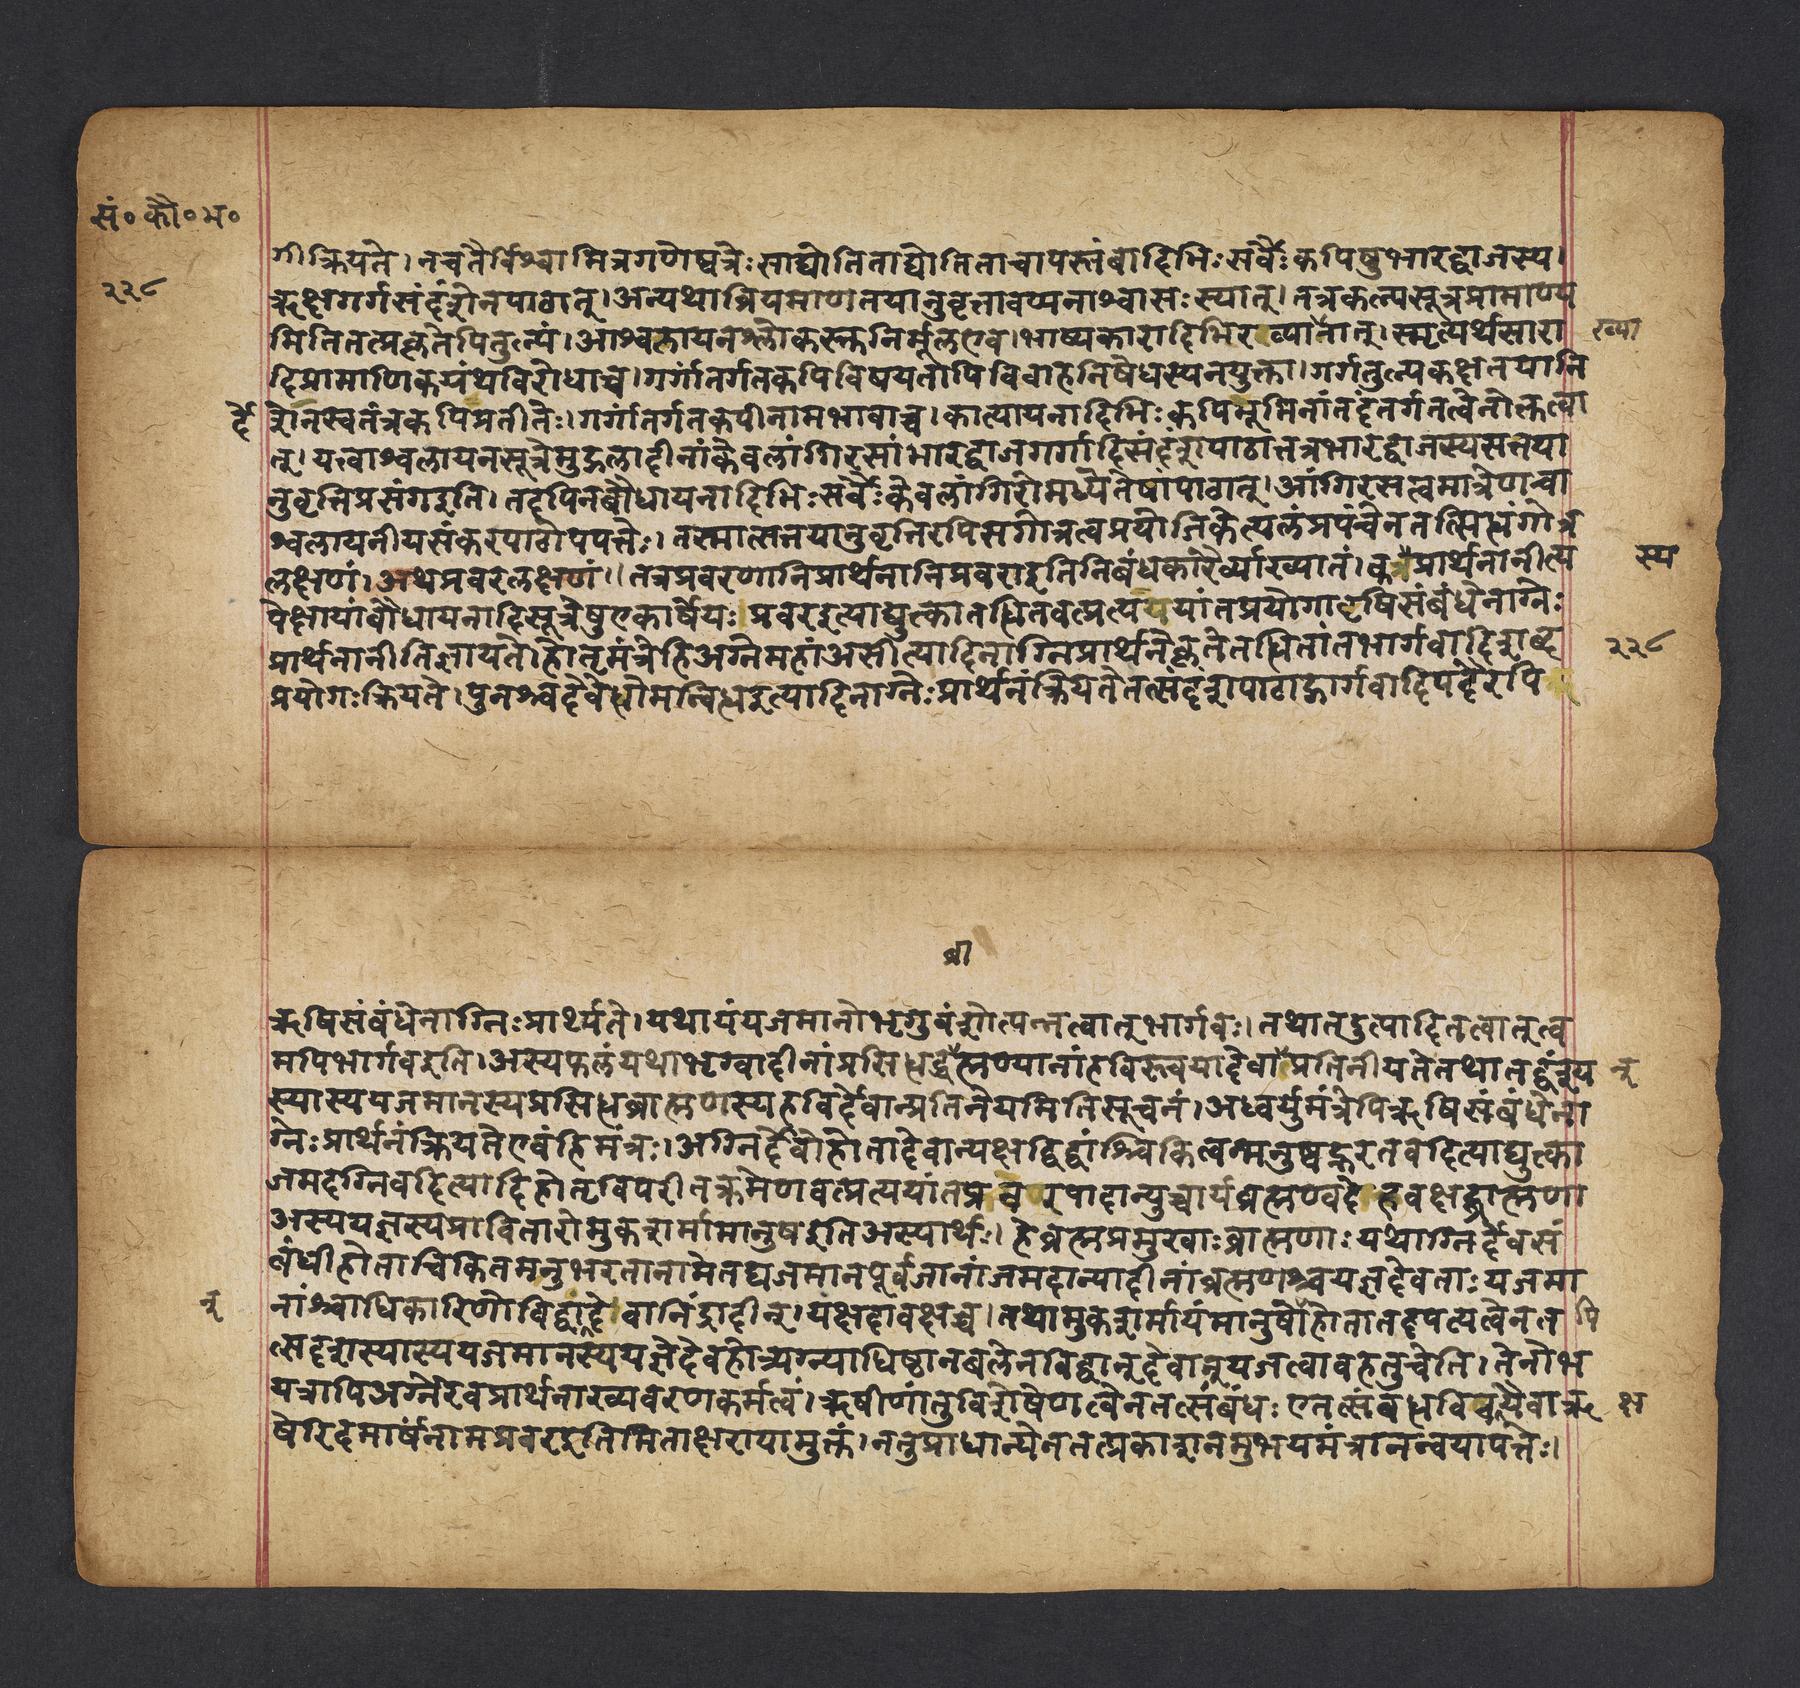 सं॰कौ॰म॰
२२८
गीक्रियते। नचतैर्विश्वामित्रगणेष्वत्रेः साद्योतिताद्योतिताचापस्तंबादिभिः सर्वैः कपिषुभारद्वाजस्य।
ऋक्षगर्गसंदंशेनपाठात्। अन्यथाध्रियमाणतयानुवृत्तावप्यनाश्वासः स्यात्। तत्रकल्पसूत्रप्रामाण्य
मितितत्प्रकृतेपितुल्यं। आश्वलायनश्लोकस्तुनिर्मूलएव। भाष्यकारादिभिरव्याख्यातात्। स्मृत्यर्थसारा
ख्या
दिप्रामाणिकग्रंथविरोधाच्च। गर्गांतर्गतकपिविषयतोपिविवाहनिषेधस्यनयुक्ता। गर्गतुल्यकक्षतयानि
र्दे
शेनस्वतंत्रकपिप्रतीतेः। गर्गांतर्गतकपीनामभावाच्च। कात्यायनादिभिः कपिभूमिनांतदंतर्गतत्वेनोक्तत्वा
त्। यत्त्वाश्वलायनसूत्रेमुद्गलादीनांकेवलांगिरसांभारद्वाजगर्गादिसंदंशपाठात्तत्रभारद्वाजस्यसत्तया
नुवृत्तिप्रसंगइति। तदपिनबौधायनादिभिः सर्वैः केवलांगिरोमध्येतेषांपाठात्। आंगिरसत्वमात्रेणान्वा
श्वलायनीयसंकरपाठोपपत्तेः। तस्मात्सत्तयानुवृत्तिरपिसगोत्रत्वप्रयोजिकेत्यलंप्रपंचेनतत्सिद्धंगोत्र
लक्षणं। अथप्रवरलक्षणं॥ तत्रप्रवरणानिप्रार्थनानिप्रवराइतिनिबंधकारैर्व्याख्यातं। कत्रप्रार्थनानीत्य
स्य
पेक्षायांबौधायनादिसूत्रेषुएकार्षेयः प्रवरइत्याद्युत्कातद्धितवत्प्रत्यययांतप्रयोगादृषिसंबंधेनाग्नेः
प्रार्थनानीतिज्ञायते। होतृमंत्रेहिअग्नेमहांअसीत्यादिनाग्निप्रार्थनेकृतेतद्धितांतभार्गवादिशब्द
२२८
प्रयोगः क्रियते। पुनश्चदेवेद्धोमन्विद्धइत्यादिनाग्नेः प्रार्थनंक्रियतेतत्संदंशपाठाद्भार्गवादिपदैरपि
श्री
ऋषिसंबंधेनाग्निः प्रार्थ्यते। यथायंयजमानोभृगुवंशोत्पन्नत्वात्भार्गवः। तथातदुत्पादितत्वात्त्व
मपिभार्गवइति। अस्यफलंयथाभृग्वादीनांप्रसिद्धब्रह्मण्यानांहविस्त्वयादेवान्प्रतिनीयतेतथातद्वंश्य
न्
स्यास्ययजमानस्यप्रसिद्धब्राह्मणस्यहविर्देवान्प्रतिनेयमितिसूचनं। अध्वर्युमंत्रेपिऋषिसंबंधेना
ग्नेः प्रार्थनंक्रियतेएवंहिमंत्रः। अग्निर्देवोहोतादेवान्यक्षद्विद्वांश्चिकित्वन्मनुष्वद्भरतवदित्याद्युत्का
जमदग्निवदित्यादिहोतृविपरीतक्रमेणवत्प्रत्ययांतप्रवरपादान्युच्चार्यब्रह्मण्वदेहवक्षद्ब्राह्मणा
अस्ययज्ञस्यप्रावितारोमुकशर्मामानुषइतिअस्यार्थः। हेब्रह्मप्रमुखाः ब्राह्मणाः यथाग्निर्देवसं
बंधीहोताचिकितमनुभरतानामेतद्यजमानपूर्वजानांजमदान्यादीनांब्रह्मणश्चयज्ञदेवताः यजमा
न्
नांश्चाधिकारिणोविद्वान्देवानिंद्रादीन्। यक्षदावक्षच्च। तथामुकशर्मायंमानुषोहोतातदपत्यत्वेनत
पि
त्सदृशस्यास्ययजमानस्ययज्ञेदेवहोत्र्यग्न्याधिष्ठानबलेनविद्वान्देवान्नुयजत्वावहतुचेति। तेनोभ
यत्रापिअग्नेरेवप्रार्थनाख्यवरणकर्मत्वं। ऋषीणांतुविशेषेणत्वेनतत्संबंधः एतत्संबंधविवक्षयैवाऋ
क्ष
षेरिदमार्षंनामप्रवरइतिमिताक्षरायामुक्तं। नतुप्राधान्येनतत्प्रकाशनमुभयमंत्रानन्वयापत्तेः।